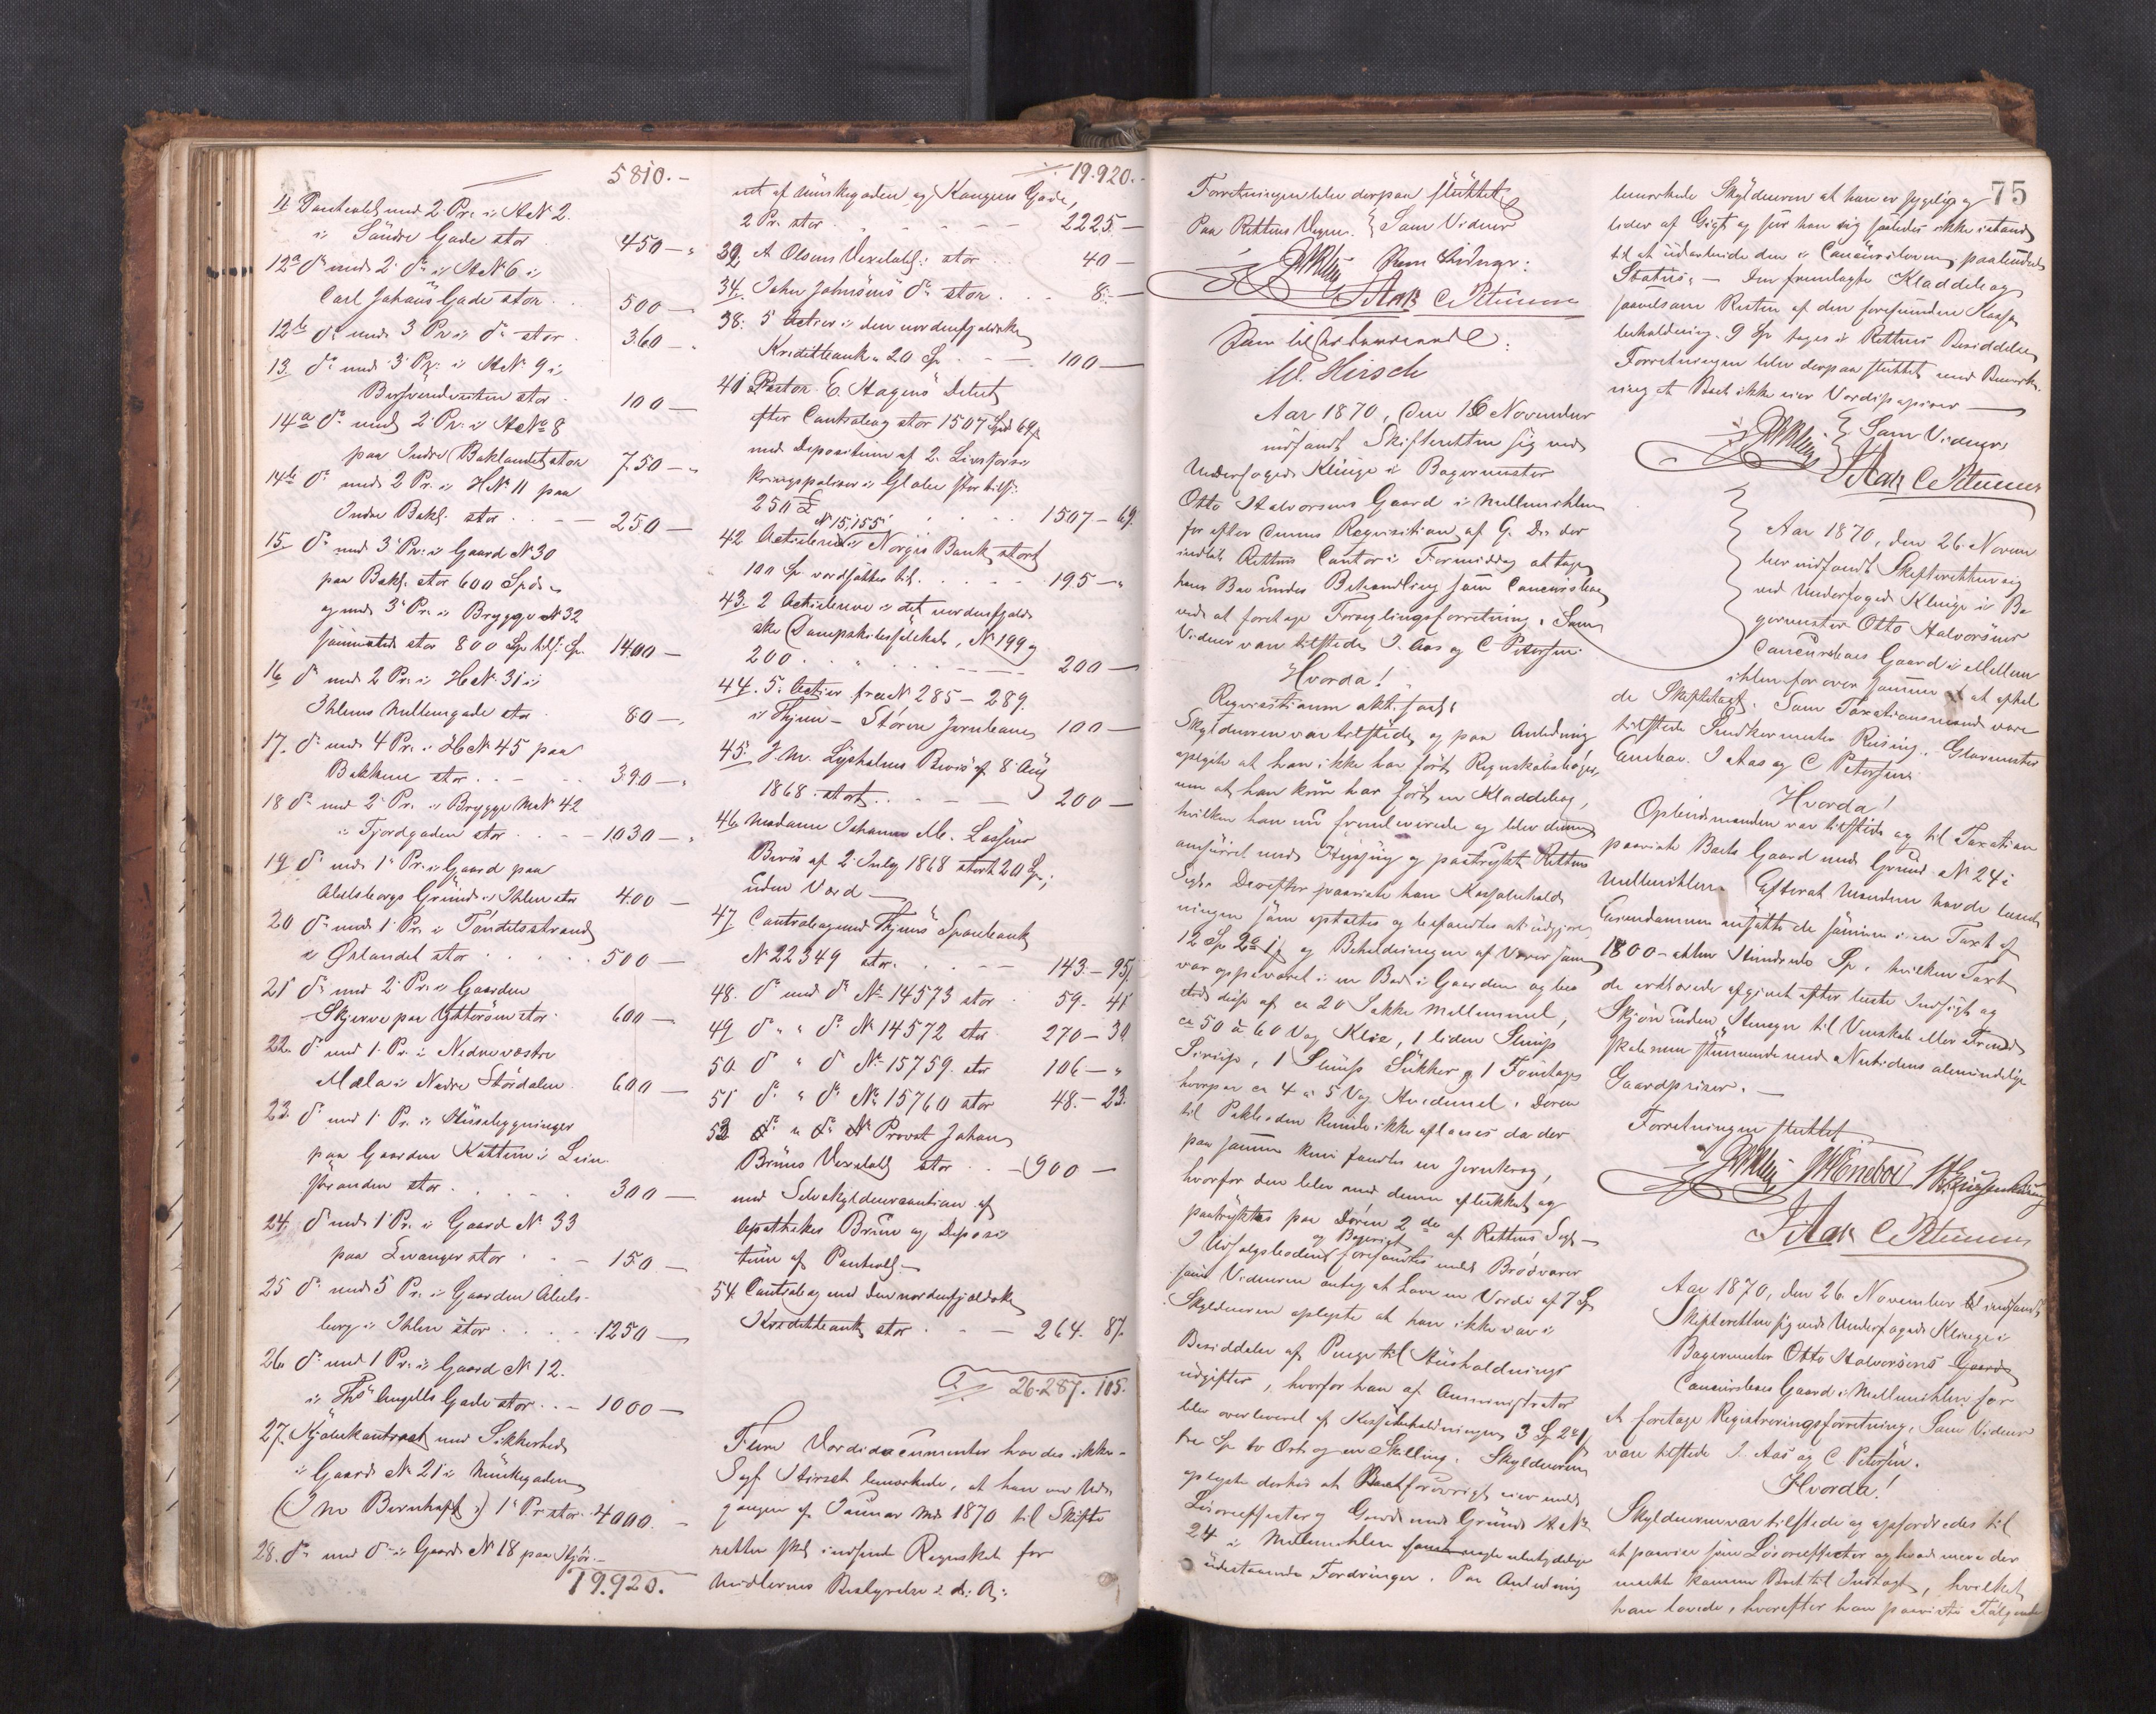 5810.-
11 Panteobl. med 2 Pr. i MN 2.
i Söndre Gade stor 450 - "
12a do med 2 do i MN 6 i
Carl Johans Gade stor . 500 -
12b do med 3 Pr i do stor . 360 -
13. do med 3 Pr. i MN 9 i
stor . 100 -
14a do med 2 Pr. i MNo 8
paa Indre Baklandet stor 750 - "
14b do med 2 Pr. i HN 11 paa
Indre Bakl. stor . . - 250 -
15. do med 3 Pr. i Gaard N 30
paa Bakl. stor 600 Spd. "
og med 3 Pr. i Brygge N 32
sammesteds stor 800 Sp tils. Sp. 1400 -
16 do med 2 Pr. i HN. 31 i
Ihlens Mellemgade stor . 80 - "
17. do med 4 Pr. i HN 45 paa
Bakkene stor . . - . . 390 - "
18 do med 2 Pr. i Brygge MN 42
i Fjordgaden stor . . . - 1030 - "
19 do med 1 Pr. i Gaard paa
Abelsborgs Grund i Ihlen stor 400 -
20 do med 1 Pr. i
i Ørlandet stor . . . . . 500 -
21 do med 2 Pr. i Gaarden
Skjerve paa Ytterøen stor . 600 -
22. do med 1. Pr. i Nedre vestre
Mæla i Nedre Stördalen . 600 -
23. do med 1 Pr. i Huusebygninger
paa Gaarden Kattem i Lein
stranden stor . . . . . 300 -
24. do med 1 Pr. i Gaard No 33
paa Levanger stor . . - 150 -
25 do med 5 Pr. i Gaarden Abels-
borg i Ihlen stor . . . . 1250 -
26 do med 1 Pr. i Gaard N 12.
i Ths Angells Gade stor . . - 1000 -
27. Kjøbekontract med Sikkerhed
i Gaard No 21 i Munkegaden
(J no Bernhoft) 1 Pr stor . 4000. -
28. do med do i Gaard N 18 paa Hjör-
19.920.
19.920.-
net af Munkegaden og Kongens Gade,
2 Pr. stor . . . - - - 2225. -
32. A Olsens Vexelobl: stor . . 40 -
34. John Johnsens do stor . . . 8: -
38: 5 Actier i den nordenfjeldske
Kreditbank a 20 Sp . - - 100 -
40 Pastor E. Hagens Debet
efter Contrabog stor 1507 Spd 69 s
med Depositum af 2 Livsforsi-
kringspoliser i Globe stor tils:
250 £ . . . . . 1507 - 69.
N 15,155
42 Actiebrev i Norges Bank stort
100 Sp. værdsættes til . . . . 195 - "
43. 2 Actiebreve i det nordenfjeld-
ske Dampskibsselskab, N 199 og
200 . . . . . - - 200 -
44. 5. Actier fra N 285 - 289.
i Thjem - Størens Jernbane 100 -
45. J. M. Lysholms Bevis af 8 Aug
1868. stort . . - - - 200 -
46 Madame Johanna M. Lossius
Bevis af 2 July 1868 stort 20 Sp.;
uden Værd -
47 Contrabog med Thjems Sparebank
N 22349 stor . . . - 143. - 95.
48. do med do No 14573 stor . 59. 41
49 do " " do N 14572 stor 270 - 30
50. do " do No 15759. stor 106 - "
51 do " do No 15760 stor 48. - 23.
53 do " do N Provst Johan
Brüns Vexelobl. stor . - 900 -
med Selvskyldnercaution af
Apotheker Brün og Deposi-
tum af Panteobl. -
54. Contrabog med den nordenfjeldske
Kreditbank stor . . - 264. 87.
26.287. 105.
Flere Værdidocumenter havdes ikke. -
Sgf. Hirsch bemærkede, at han ved Ud-
gangen af Januar Md. 1870 til Skifte-
retten skal indsende Regnskab for
Midlernes Bestyrelse i d. A:
Forretningen blev derpaa sluttet
Paa Rettens Vegne. } Som Vidner
Som Vidner:
J Aas C Petersen
Som tilstedeværende:
W. Hirsch
Aar 1870, den 16 November
indfandt Skifteretten sig ved
Underfoged Klinge i Bagermester
Otto Halvorsens Gaard i Mellemihlen
for efter dennes Requisition af G. D. der
indlob Rettens Contor i Formiddag at tage
hans Bo under Behandling som Concursbo
ved at foretage Forseglingsforretning. Som
Vidner var tilstede J. Aas og C Petersen.
Hvorda!
Requisitionen
Skyldneren var tilstede og paa Anledning
oplyste at han ikke har ført Regnskabsbøger,
men at han kun har ført en Kladdebog,
hvilken han nu fremleverede og blev denne
omsnøret med Hyssing og paatrykt Rettens
Segl. Derefter paaviste han Kassebehold-
ningen som optaltes og befandtes at udgjøre
12 Sp 2 o 1 s og Beholdningen af Varer som
var opbevaret i en Bod i Gaarden og be-
stod deels af ca 20 Sække Mellemmel,
ca 50 à 60 Vog Klie, 1 liden Slump
Sirup, 1 Slump Sukker og 1 Foustage
hvorpaa ca 4 à 5 Vog Hvedemel. Døren
til Pakboden kunde ikke aflaases da der
paa samme kun fandtes en Jernkrog,
hvorfor den blev med denne aflukket og
paatryktes paa Døren 2de af Rettens Segl -
og Bageriet
I Udsalgsboden forefandtes endel Brødvarer
som Vidnerne antog at have en Værdi af 7 Sp
Skyldneren oplyste at han ikke var i
Besiddelse af Penge til Huusholdnings-
udgifter, hvorfor han af Administrator
blev overleveret af Kassebeholdningen 3 Sp 2 o 1 s
tre Sp to Ort og en Skilling. Skyldneren
oplyste derhos at Boet forøvrigt eier endel
Løsøreeffecter og Gaard med Grund M. No
24 i Mellemihlen samt nogle ubetydelige
udestaaende Fordringer. Paa Anledning
75
bemærkede Skyldneren at han er sygelig og
lider af Gigt og saa han sig saaledes ikke istand
til at udarbeide den i Concursloven paabudne
Status. - Den fremlagte Kladdebog
saavelsom Resten af den forefundne Kasse-
beholdning. 9 Sp tages i Rettens Besiddelse
Forretningen blev derpaa sluttet med Bemærk-
ning at Boet ikke eier Værdipapirer -
} Som Vidner
J Aas C Petersen
Aar 1870, den 26 Novem
ber indfandt Skifteretten sig
ved Underfoged Klinge i Ba-
germester Otto Halvorsens
Concursboes Gaard i Mellem
ihlen for over samme at afhol-
de Skiftetaxt. Som Taxationsmænd vare
tilstede Reising. Glarmester
Enebo. J Aas og C Petersen.
Hvorda!
Opbudsmanden var tilstede og til Taxation
paaviste Boets Gaard med Grund No 24 i
Mellemihlen. Efterat Mændene havde beseet
Eiendommen ansatte de samme i en Taxt af
1800 - atten Hundrede Sp. hvilken Taxt
de erklærede afgivet efter bedste Indsigt og
Skjøn uden Hensyn til Venskab eller Fiend-
skab men stemmende med Nutidens almindelige
Gaardpriser. -
Forretningen sluttet
J Aas C Petersen
Aar 1870, den 26. November indfandt
Skifteretten sig ved Underfoged Klinge i
Bagermester Otto Halvorsens Gaard
Concursboes Gaard i Mellemihlen for
at foretage Registreringsforretning. Som Vidner
vare tilstede J. Aas og C. Petersen.
Hvorda!
Skyldneren var tilstede og opfordredes til
at paavise sine Løsøreeffecter og hvad mere der
maatte komme Boet til Indtægt, hvilket
han lovede, hvorefter han paaviste Følgende